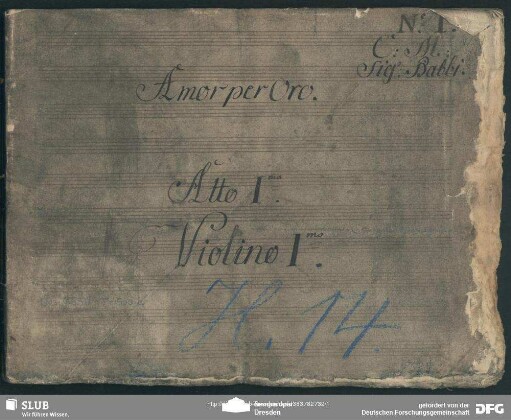 N.º 1.
C: M.
Sigr. Babbi.
Amor per Oro.
Atto I.mo
Violino I.mo
K. 14.
SLUB
Wir führen Wissen.
Dresden
gefördert von der
Deutschen Forschungsgemeinschaft
DFG